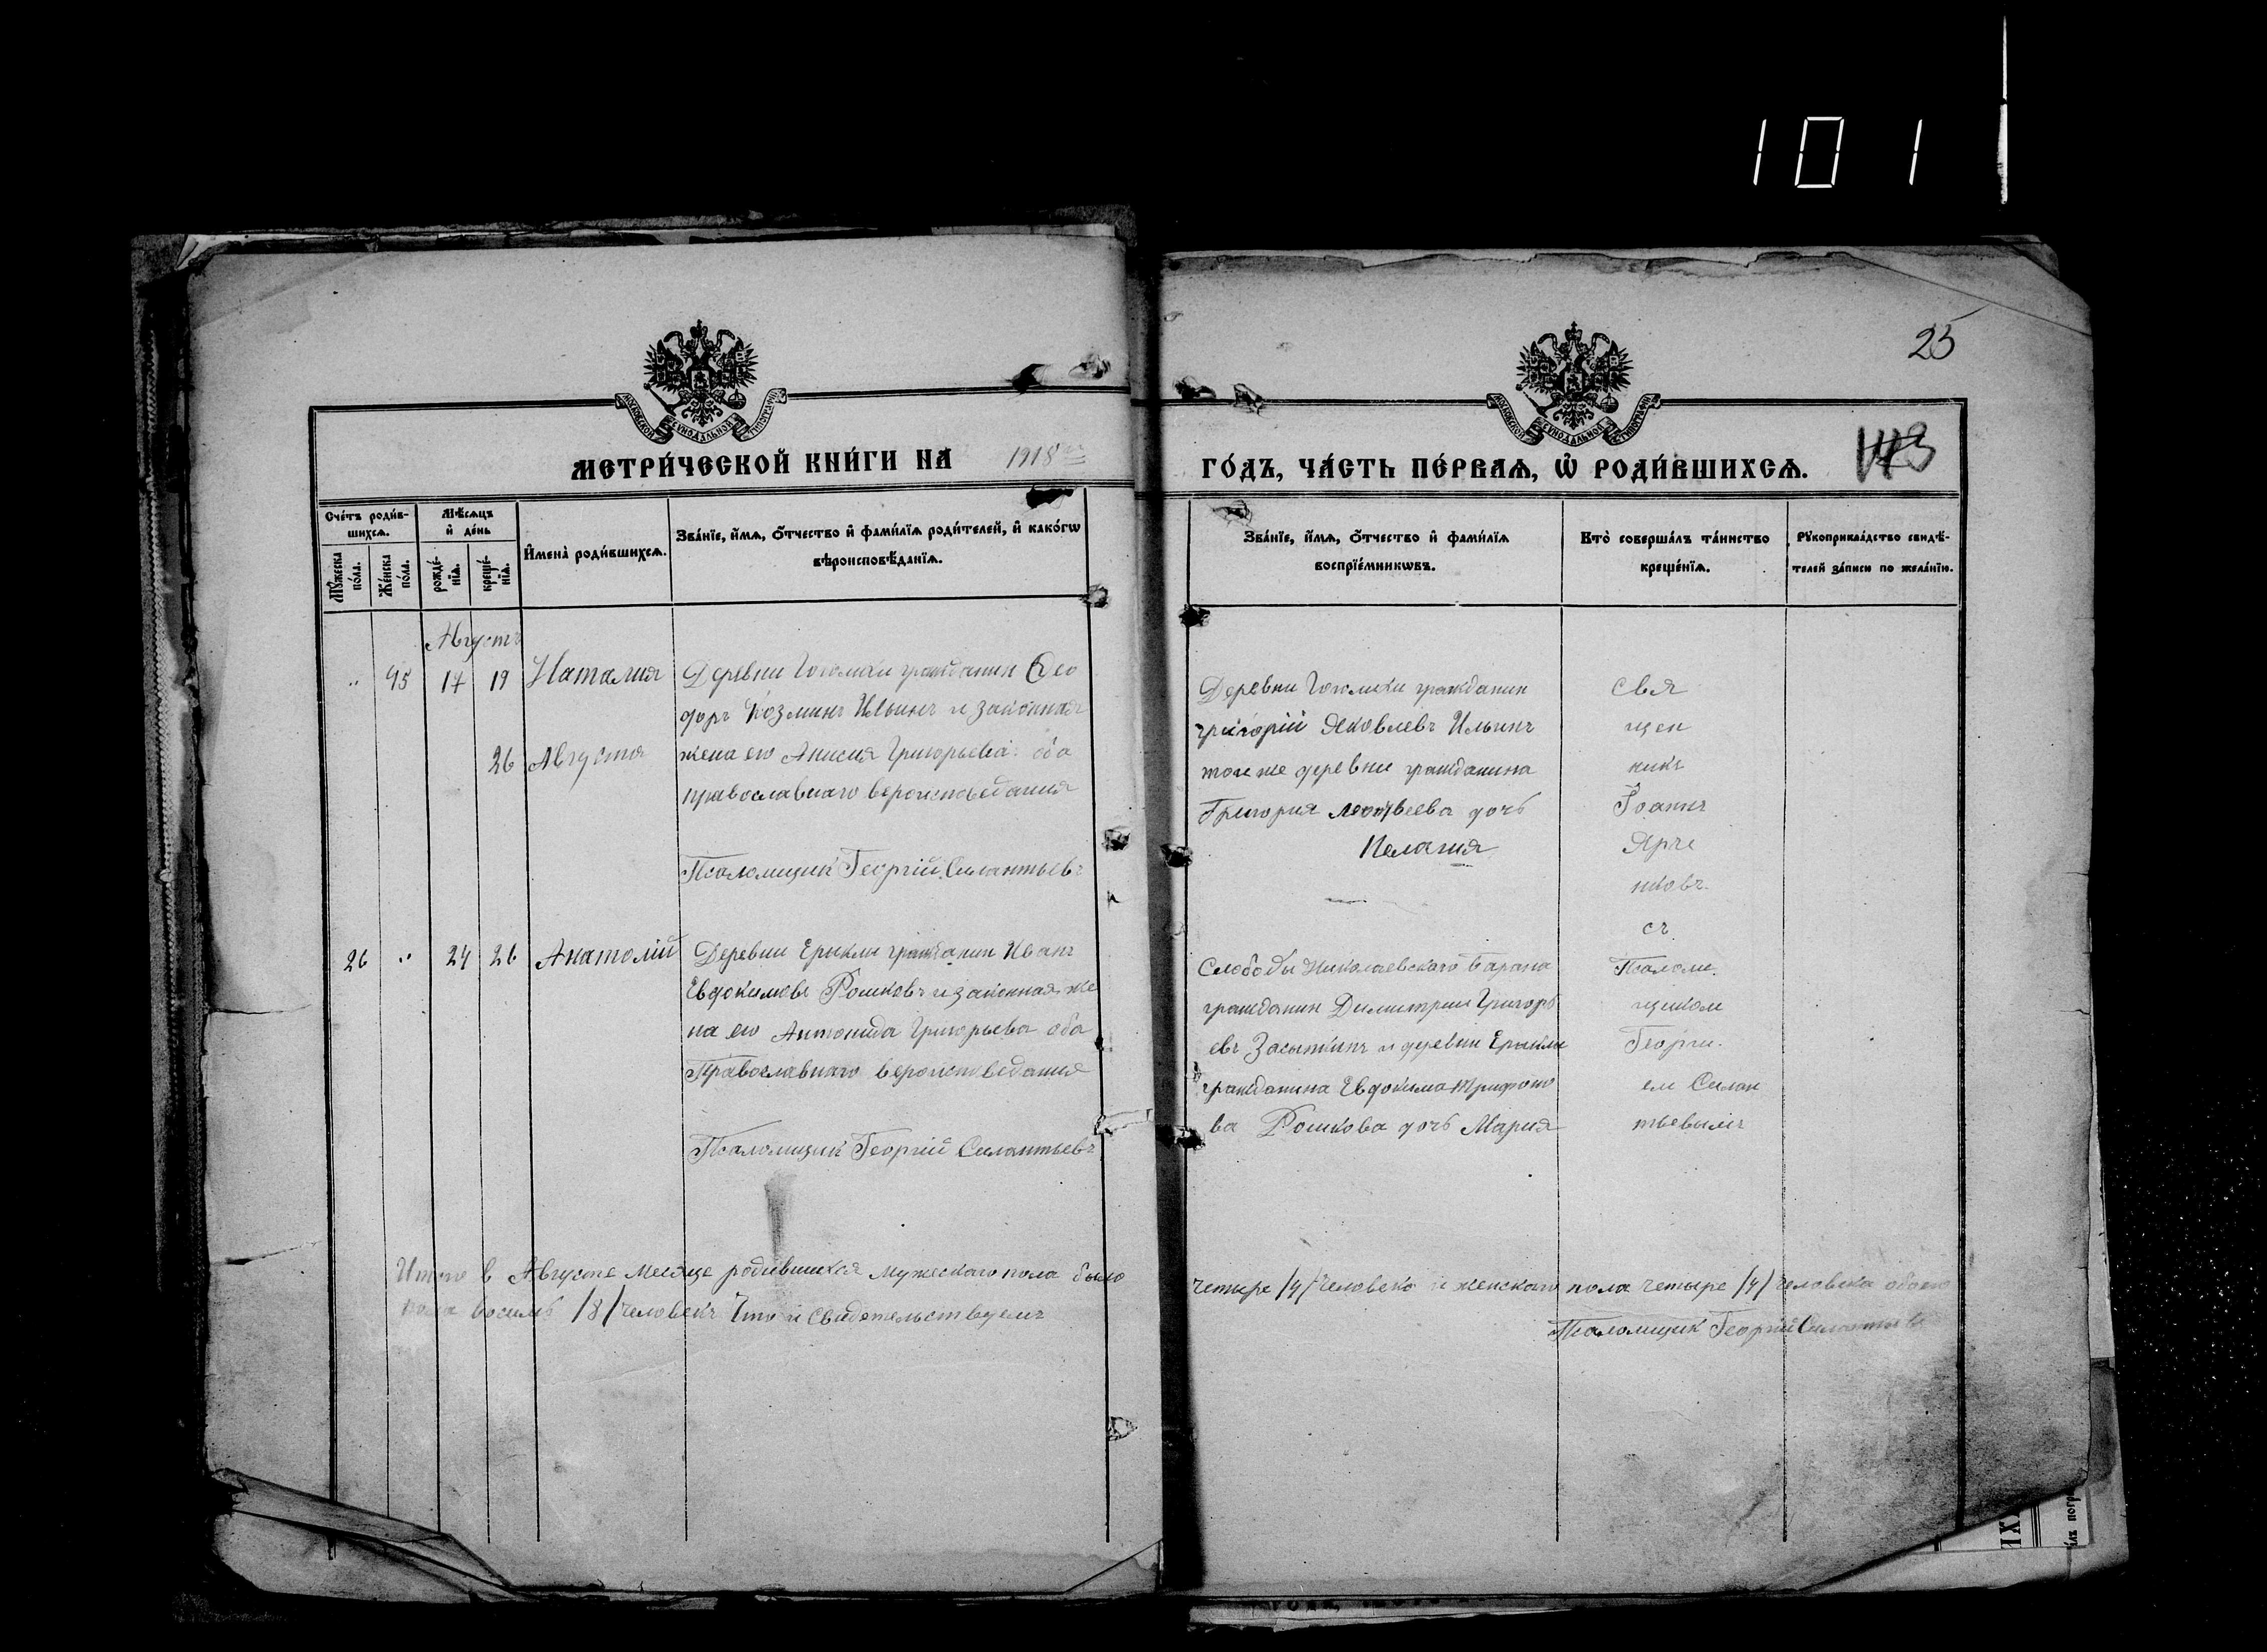 101
25
МОСКОВСКОЙ СѴНОДАЛЬНОЙ ТИПОГРАФІИ
МОСКОВСКОЙ СѴНОДАЛЬНОЙ ТИПОГРАФІИ
МЕТРИ́ЧЕСКОЙ КНИ́ГИ НА 1918
ГО́ДЪ, ЧА́СТЬ ПЕ́РВАѦ, Ѡ҆ РОДИ́ВШИХСѦ.
Сче́тъ роди́в-
шихсѧ.
Мꙋ́жеска по́ла.
Же́нска по́ла.
Мѣ́сѧцъ
и҆ де́нь
рожде́-
нїѧ.
креще́-
нїѧ.
И҆мена̀ роди́вшихсѧ.
Зва́нїе, и҆́мѧ, ѻ҆́тчество и҆ фами́лїѧ роди́телей, и҆ како́гѡ
вѣроисповѣ́данїѧ.
Зва́нїе, и҆́мѧ, ѻ҆́тчество и҆ фами́лїѧ
воспрїе́мникѡвъ.
Кто̀ соверша́лъ та́инство
креще́нїѧ.
Рꙋкоприкла́дство свидѣ́-
телей за́писи по жела́нїю.
Августъ
45 17 19 Наталия
Деревни гражданин Фео
доръ Козминъ Ильинъ и законная
26 Августа
жена его Анисия Григорьева оба
православнаго вероисповедания
Псаломщик Георгій Силантьевъ
Деревни гражданин
Григорій Яковлевъ Ильинъ
тои же деревни гражданина
Григория дочь
Пелагия
свя
щен
никъ
Іоаннъ
Ярче
нковъ.
съ
Псалом.
щиком
Георги.
ем Силан
тьевымъ
26 24 26 Анатолій
Деревни Ерыкли гражданин Иванъ
Евдокимовъ Рошковъ и законная же
на его Антонида Григорьева оба
Православнаго вероисповедания
Псаломщик Георгій Силантьевъ
Слободы Николаевского
гражданин Димитрии Григорь
евъ Засыпкинъ и деревни Ерыкли
гражданина Евдокима Трифоно
ва Рошкова дочь Мария
Итого в Августе месяце родившихся мужескаго пола было четыре /4/ человека и женскаго пола четыре /4/ человека обоего
пола восемь /8/ человекъ Что и свидетельствуемъ
Псаломщик Георгій Силантьев